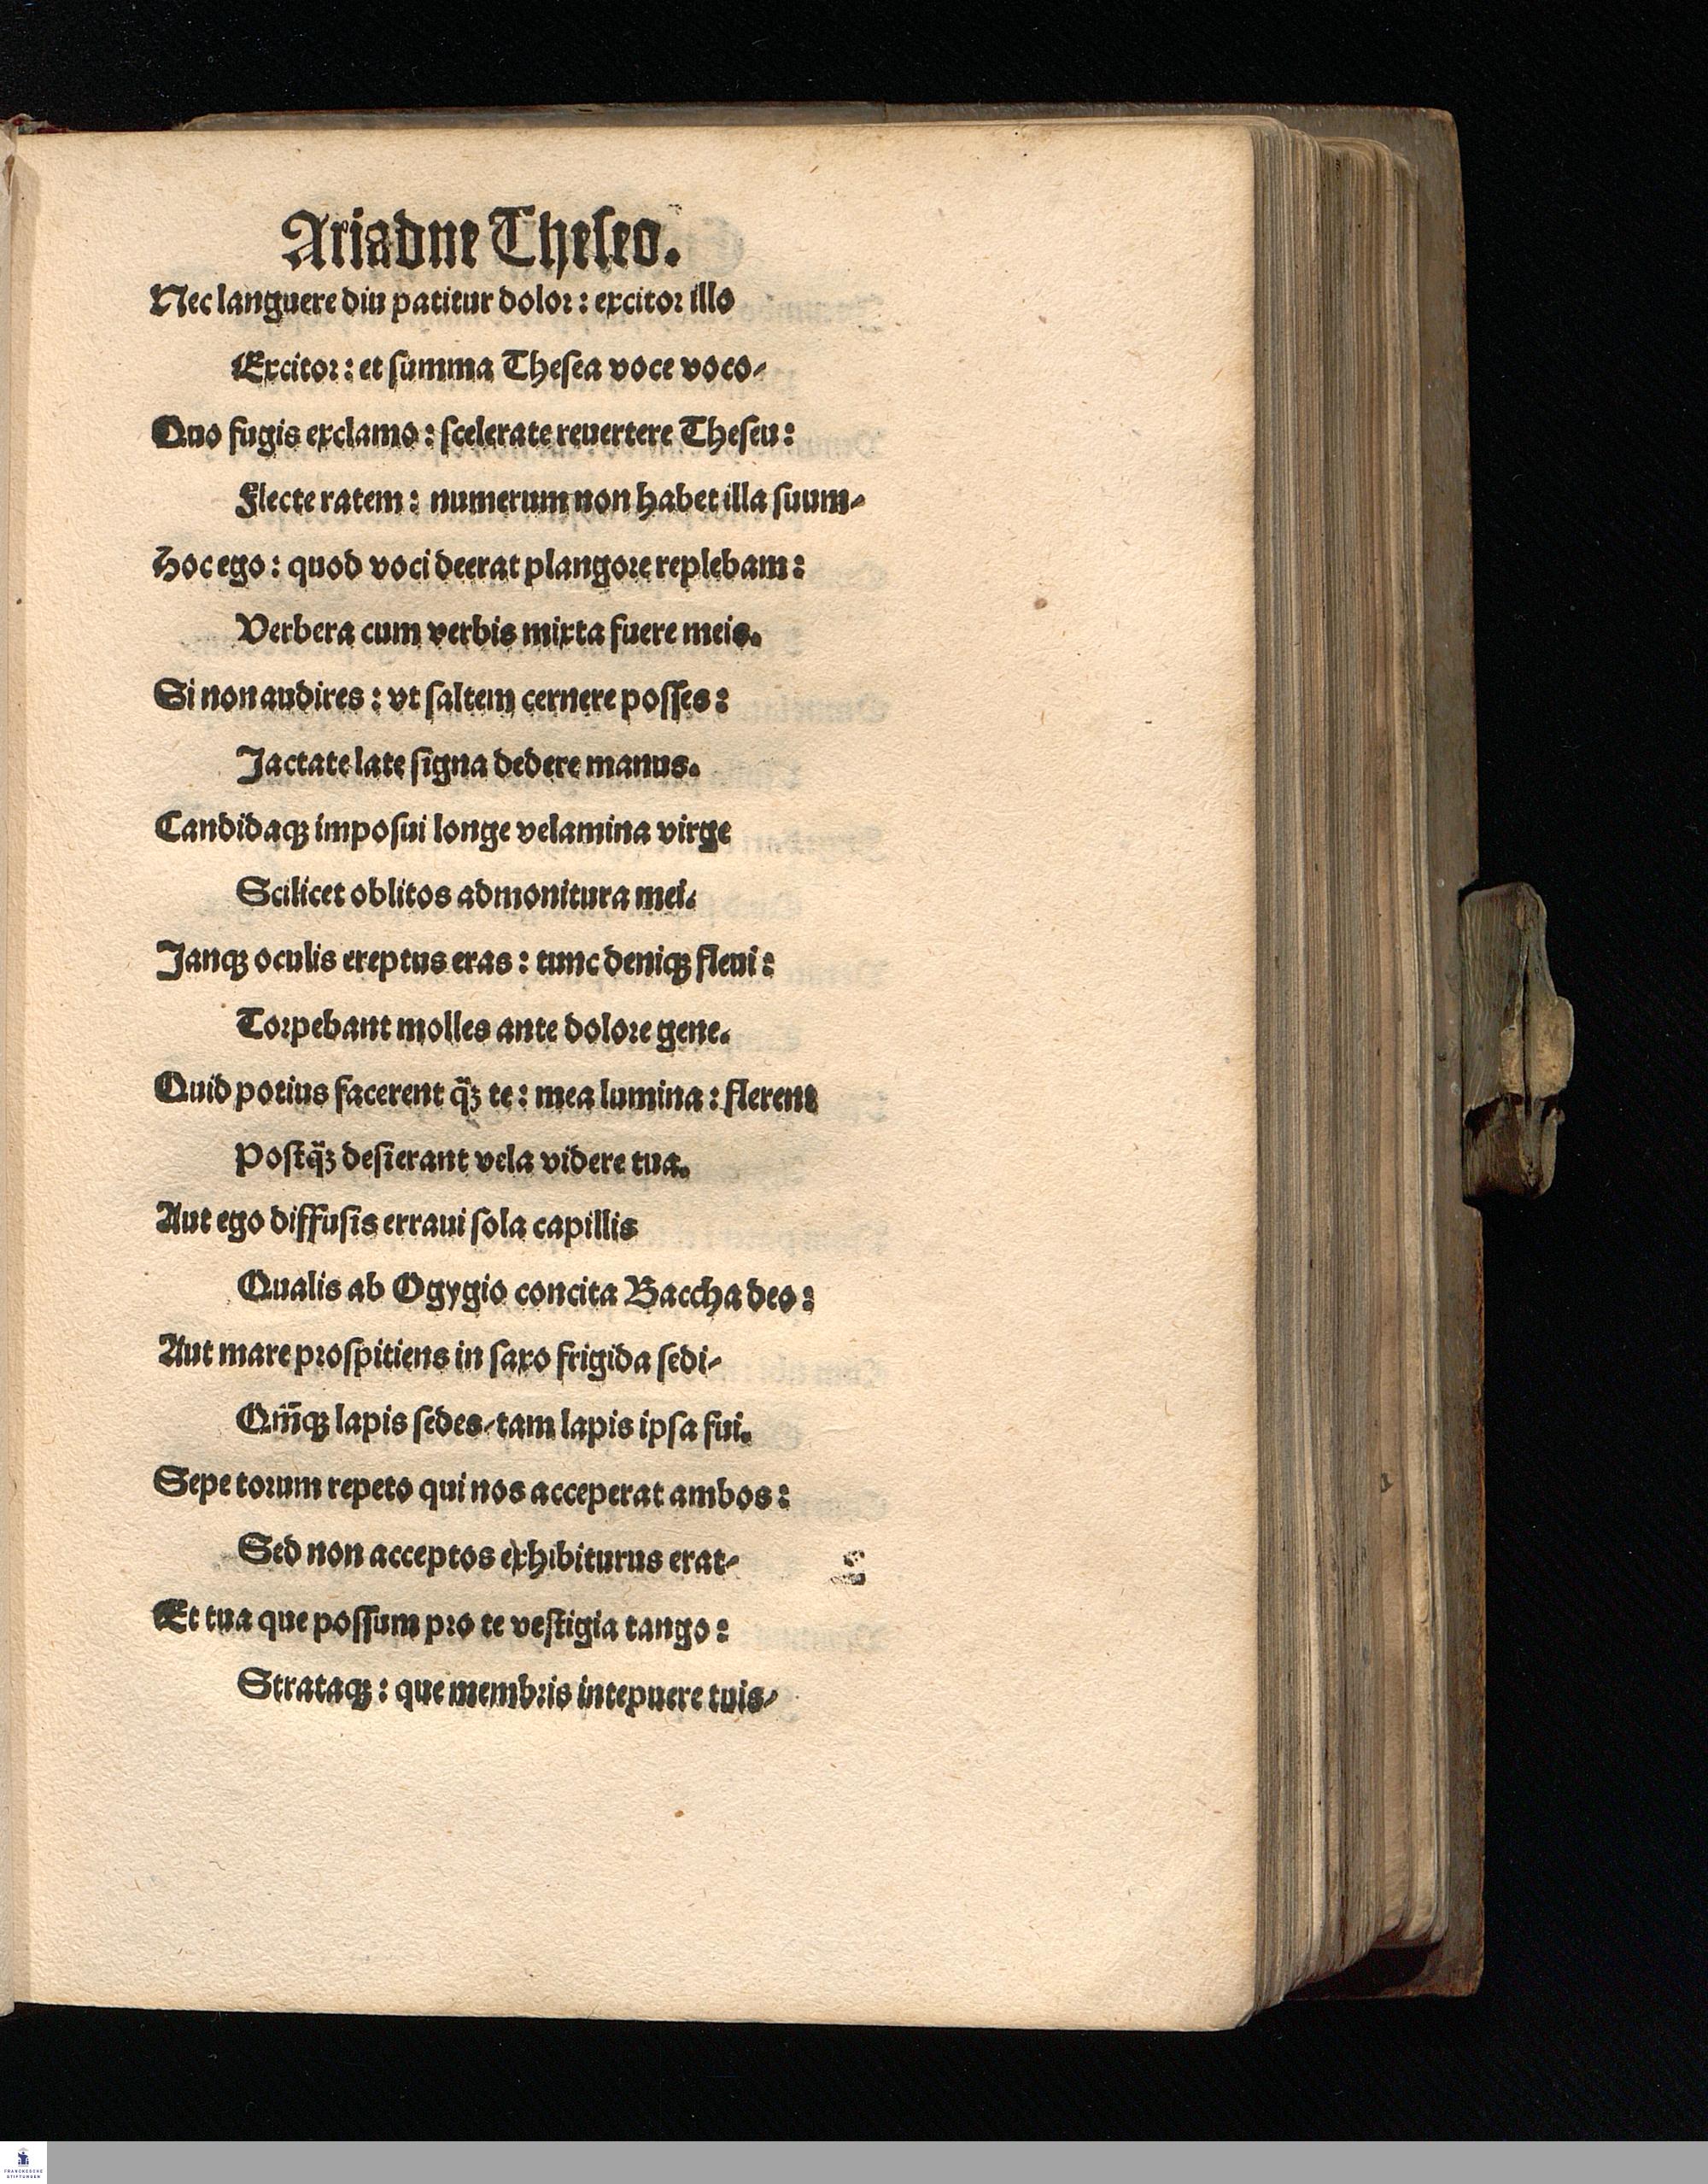 Ariadne Theſeo.
Nec languere diu patitur dolor: excitor illo
Excitor: et ſumma Theſea voce voco⸗
Quo fugis exclamo: ſcelerate reuertere Theſeu:
Flecte ratem: numerum non habet illa ſuum⸗
Hoc ego: quod voci deerat plangore replebam:
Verbera cum verbis mixta fuere meis.
Si non audires: vt ſaltem cernere poſſes:
Jactate late ſigna dedere manus.
Candidaqꝫ impoſui longe velamina virge
Scilicet oblitos admonitura mei.
Janqꝫ oculis ereptus eras: tunc deniqꝫ fleui:
Torpebant molles ante dolore gene.
Quid potius facerent q̈ꝫ te: mea lumina: flerent
Poſtq̈ꝫ deſierant vela videre tua.
Aut ego diffuſis erraui ſola capillis
Qualis ab Ogygio concita Baccha deo:
Aut mare proſpitiens in ſaxo frigida ſedi⸗
Qm̄qꝫ lapis ſedes⸗tam lapis ipſa fui.
Sepe torum repeto qui nos acceperat ambos:
Sed non acceptos exhibiturus erat⸗
Et tua que poſſum pro te veſtigia tango:
Strataqꝫ: que membris intepuere tuis⸗
FRANCKESCHE
STIFTUNGEN